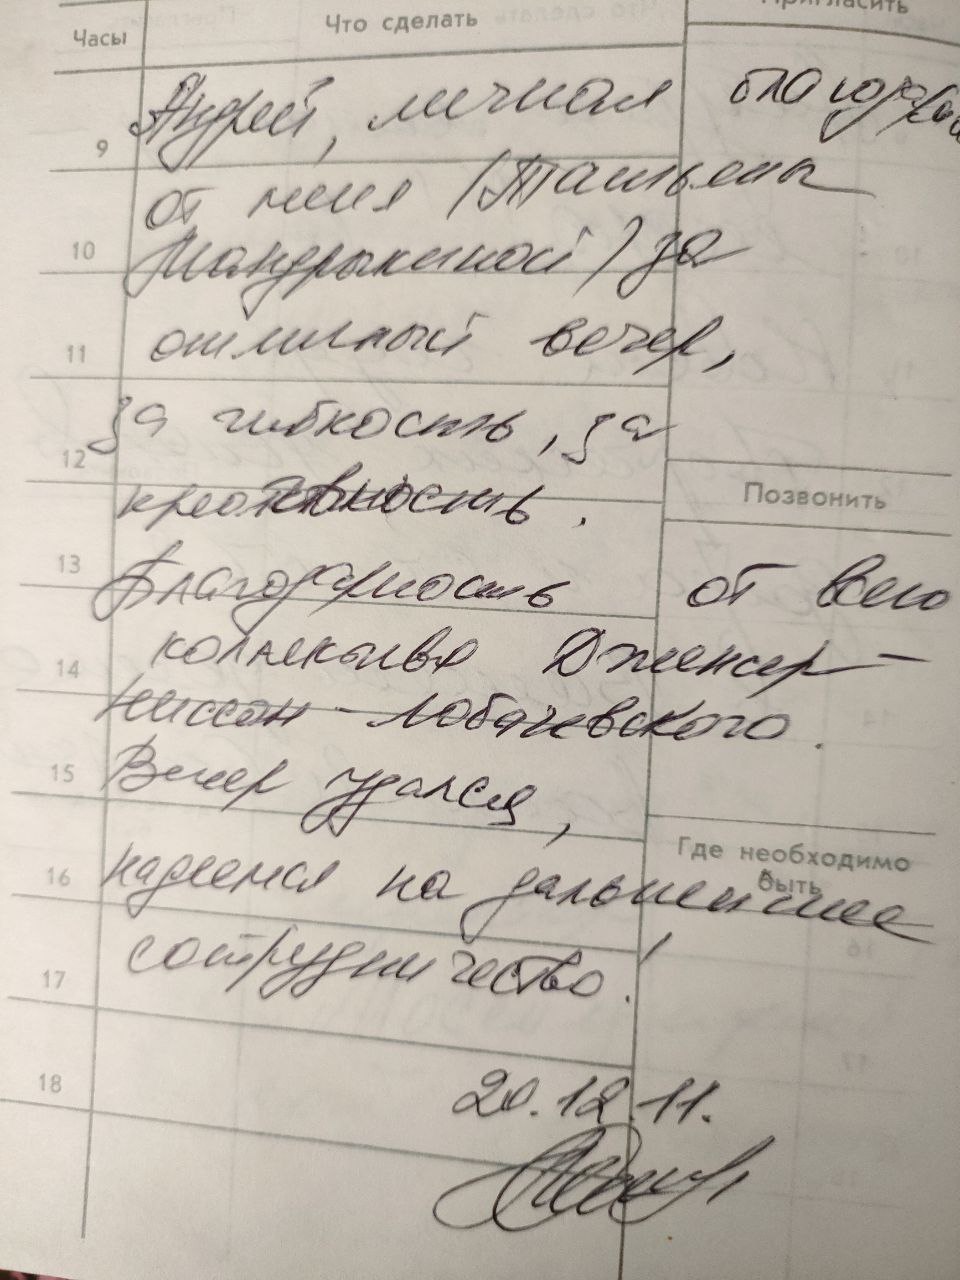 Часы Что сделать Пригласить
Андрей, личная благодарность
9
от меня (Татьяны
10
Мандрыкиной) за
11
отличный вечер,
за гибкость, за
12
креативность.
Позвонить
13
Благодарность от всего
коллектива Дженсер-
14
Ниссан-Лобачевского.
15
Вечер удался,
Где необходимо
быть
16
надеемся на дальнейшее
сотрудничество!
17
18
20.12.11.